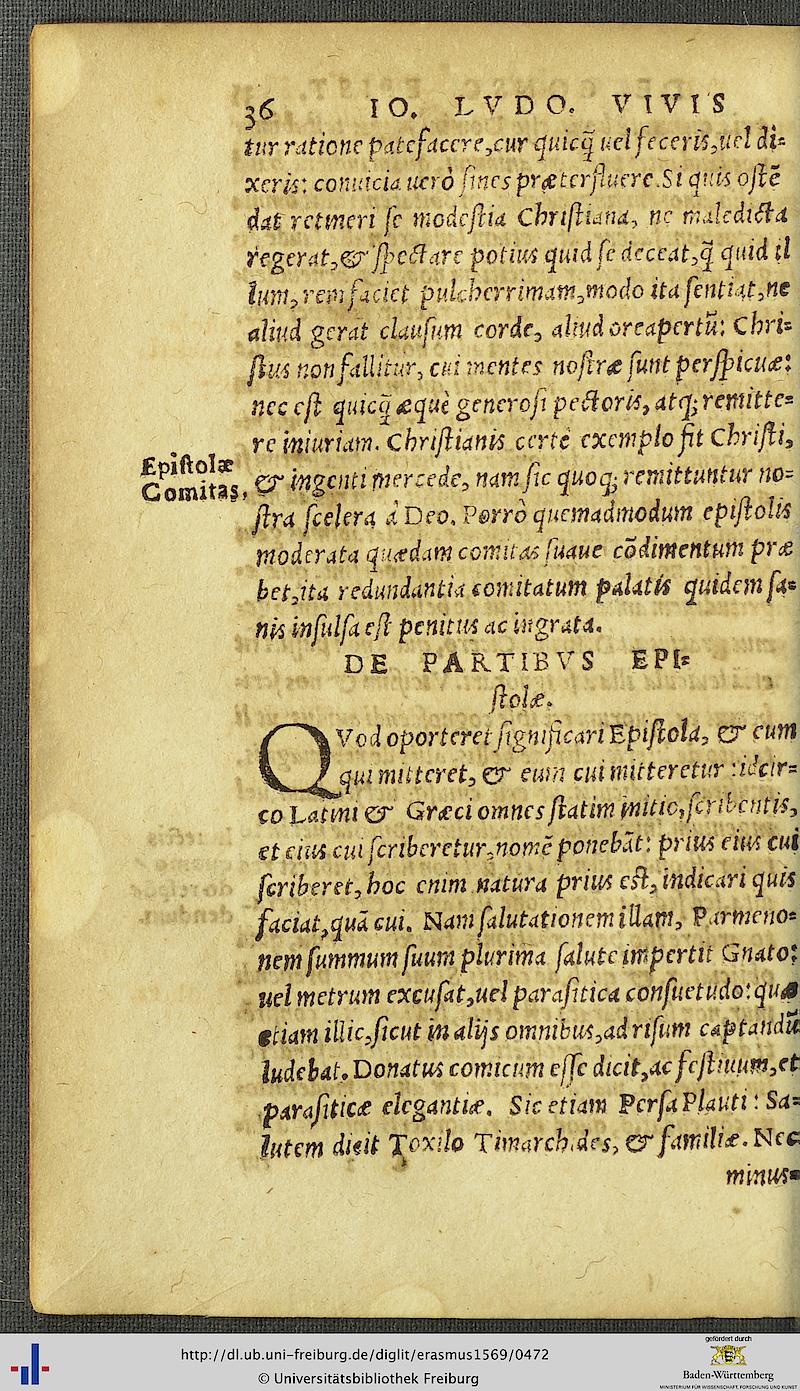 36 IO. LVDO. VIVIS
tur ratione patefacere, cur quicq̃ uel feceris, uel di=
xeris: conuicia uerò sines præterfluere. Si quis ostē
dat retineri se modestia Christiana, ne maledicta
regerat, & spectare potius quid se deceat, q̃ quid il
lum, rem faciet pulcherrimam, modo ita sentiat, ne
aliud gerat clausum corde, aliud ore apertū: Chri=
stus non fallitur, cui mentes nostræ sunt perspicuæ:
nec est quicq̃ æquè generosi pectoris, atq; remitte=
re iniuriam. Christianis certè exemplo fit Christi,
Epistolæ
Comitas,
& ingenti mercede, nam sic quoq; remittuntur no=
stra scelera à Deo. Porrò quemadmodum epistolis
moderata quædam comitas suaue cōdimentum præ
bet, ita redundantia comitatum palatis quidem sa=
nis insulsa est penitus ac ingrata.
DE PARTIBVS EPI=
stolæ.
QVod oporteret significari Epistola, & eum
qui mitteret, & eum cui mitteretur: idcir=
co Latini & Græci omnes statim initio, scribentis,
et eius cui scriberetur, nomē ponebāt: prius eius cui
scriberet, hoc enim natura prius est, indicari quis
faciat, quā cui. Nam salutationem illam, Parmeno=
nem summum suum plurima salute impertit Gnato:
uel metrum excusat, uel parasitica consuetudo: quæ
etiam illic, sicut in alijs omnibus, ad risum captandū
ludebat. Donatus comicum esse dicit, ac festiuum, et
parasiticæ elegantiæ. Sic etiam Persa Plauti: Sa=
lutem dicit Toxilo Timarchides, & familiæ. Nec
minus=
http://dl.ub.uni-freiburg.de/diglit/erasmus1569/0472
© Universitätsbibliothek Freiburg
gefördert durch
Baden-Württemberg
MINISTERIUM FÜR WISSENSCHAFT, FORSCHUNG UND KUNST